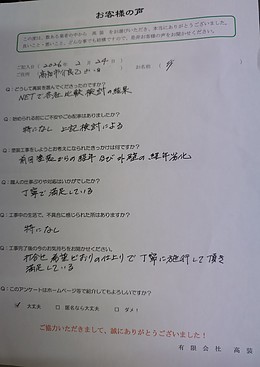 お客様の声
この度は、数ある業者の中から、高装をお選びいただき、本当にありがとうございました。
良いこと・悪いこと、どんな事でも結構ですので、是非お客様の声をお聞かせください。
ご記入日 ( 2026 年 2 月 24 日 )
ご住所
お名前
Q：どうして高装を選んでくださったのですか？
NETで各社比較検討の結果
特になし 上記検討による
Q：塗装工事をしようとお考えになられたきっかけは何ですか？
前回塗装からの経年及び外壁の経年劣化
Q：職人の仕事ぶりや対応はいかがでしたか？
丁寧で満足している
Q：工事中の生活で、不具合に感じられた所はありますか？
特になし
Q：工事完了後の今のお気持ちをお聞かせください。
打合せ、希望どおりの仕上りで丁寧に施行して頂き
満足している
Q：このアンケートはホームページ等で紹介してもよろしいですか？
大丈夫 匿名なら大丈夫 ダメ！
ご協力いただきまして、誠にありがとうございました！
有限会社 高装